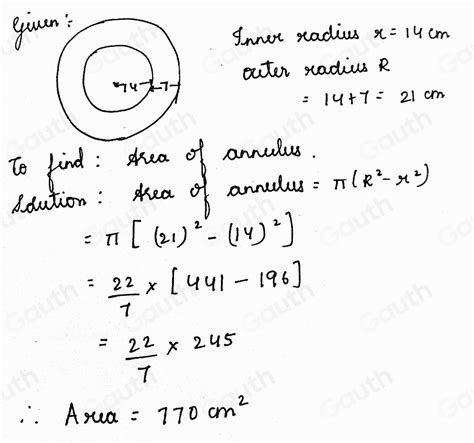 Given :-
Inner radius r = 14 cm
outer radius R
= 14+7 = 21 cm
14 7
To find : Area of annulus.
Solution : Area of annulus = π(R² - r²)
= π [ (21)² - (14)² ]
= 22/7 × [441 - 196]
= 22/7 × 245
∴ Area = 770 cm²
Gauth